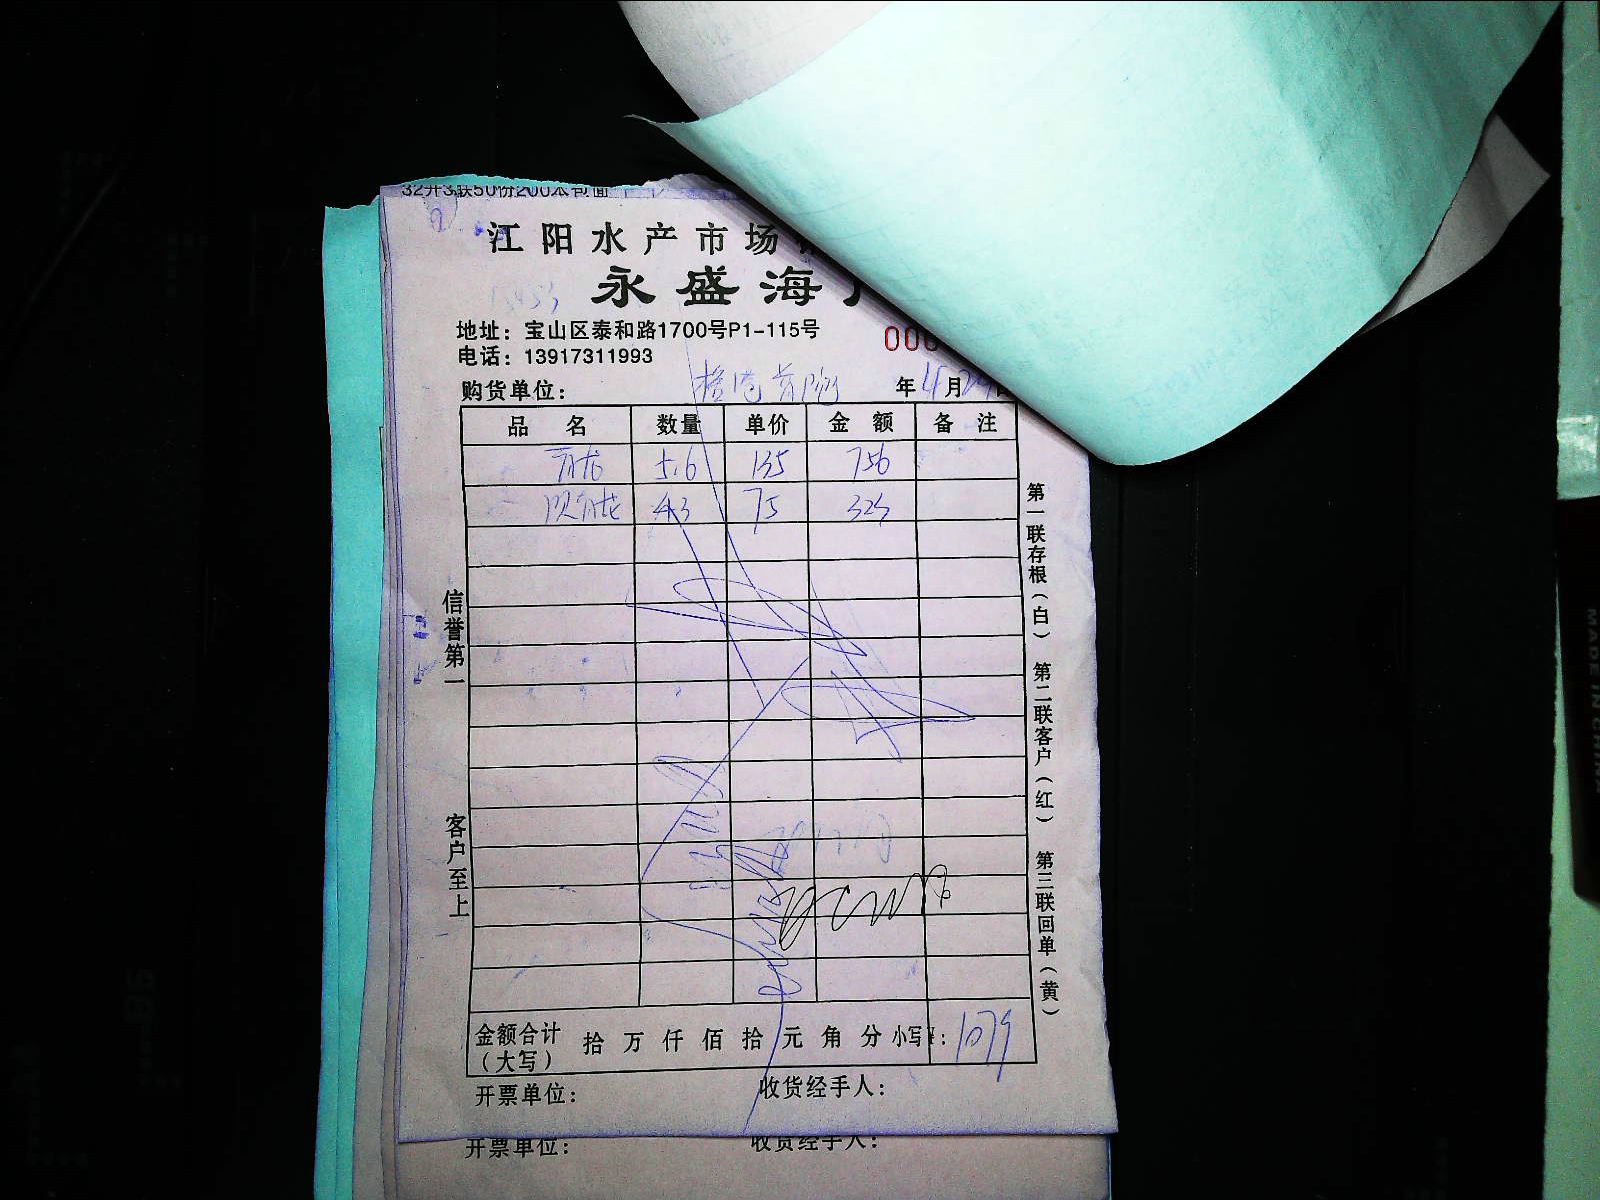 32开3联50份200本包面
江阳水产市场
永盛海
地址：宝山区泰和路1700号P1-115号
电话：13917311993
000
购货单位： 年4月29日
品名 数量 单价 金额 备注
青龙 5.6 135 756
青龙 4.3 75 323
信誉第一
客户至上
第一联存根（白） 第二联客户（红） 第三联回单（黄）
金额合计（大写） 拾万仟佰拾元角分 小写¥：1079
开票单位： 收货经手人：
开票单位： 收货经手人：